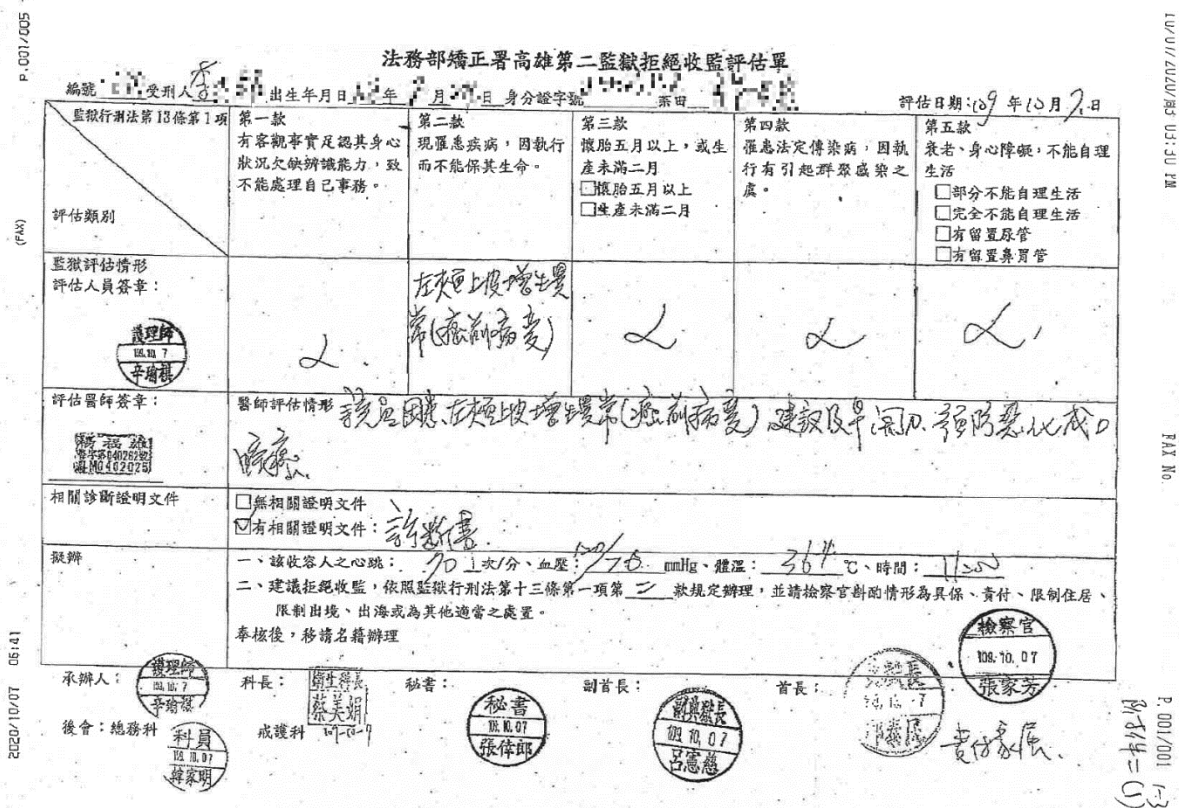 法務部矯正署高雄第二監獄拒絕收監評估單
編號 受刑人 李 出生年月日 年 月 日 身分證字號 票甲 評估日期:109 年10月7日
監獄行刑法第13條第1項
評估類別
第一款
有客觀事實足認其身心
狀況欠缺辨識能力,致
不能處理自己事務。
第二款
現罹患疾病,因執行
而不能保其生命。
第三款
懷胎五月以上,或生
產未滿二月
□懷胎五月以上
□生產未滿二月
第四款
罹患法定傳染病,因執
行有引起群聚感染之
虞。
第五款
衰老、身心障礙,不能自理
生活
□部分不能自理生活
□完全不能自理生活
□有留置尿管
□有留置鼻胃管
監獄評估情形
評估人員簽章:
護理師
109.10.7
辛瑜祺
左頰上皮增生異
常(癌前病變)
評估醫師簽章:
楊福雄
醫師評估情形 該員因患左頰上皮增生異常(癌前病變)建議及早開刀、預防惡化成口
腔癌。
相關診斷證明文件
□無相關證明文件
☑有相關證明文件:診斷書
擬辦
一、該收容人之心跳: 次/分、血壓:120/78 mmHg、體溫:36.4 ℃、時間:
二、建議拒絕收監,依照監獄行刑法第十三條第一項第 二 款規定辦理,並請檢察官斟酌情形為具保、責付、限制住居、
限制出境、出海或為其他適當之處置。
奉核後,移請名籍辦理
檢察官
109.10.07
張家芳
承辦人:
護理師
109.10.7
辛瑜祺
科長:
衛生科長
蔡美娟
秘書:
秘書
109.10.07
張偉郎
副首長:
副典獄長
109.10.07
呂憲慈
首長:
典獄長
責付家屬
後會:總務科
科員
109.10.07
韓家明
戒護科
P.001/005
(FAX)
2020/10/07 06:41
FAX No.
P.001/001
附件二(1)
1-3